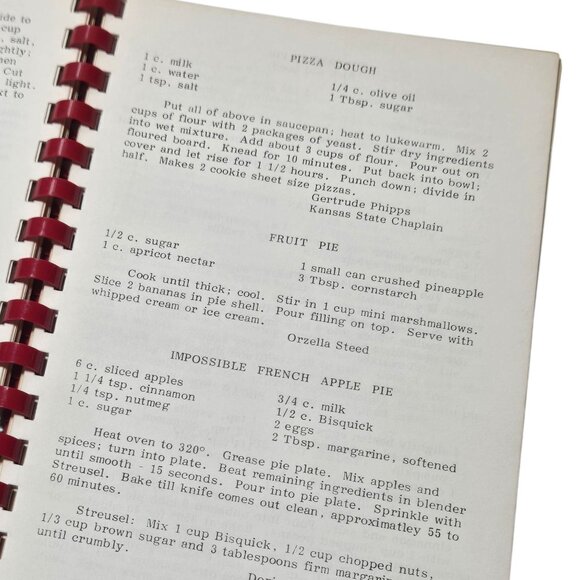 ide to
cup
. salt,
ghtly;
hen
Cut
light.
xt to
PIZZA DOUGH
1 c. milk
1 c. water
1 tsp. salt
1/4 c. olive oil
1 Tbsp. sugar
Put all of above in saucepan; heat to lukewarm. Mix 2
cups of flour with 2 packages of yeast. Stir dry ingredients
into wet mixture. Add about 3 cups of flour. Pour out on
floured board. Knead for 10 minutes. Put back into bowl;
cover and let rise for 1 1/2 hours. Punch down; divide in
half. Makes 2 cookie sheet size pizzas.
Gertrude Phipps
Kansas State Chaplain
FRUIT PIE
1/2 c. sugar
1 c. apricot nectar
1 small can crushed pineapple
3 Tbsp. cornstarch
Cook until thick; cool. Stir in 1 cup mini marshmallows.
Slice 2 bananas in pie shell. Pour filling on top. Serve with
whipped cream or ice cream.
Orzella Steed
IMPOSSIBLE FRENCH APPLE PIE
6 c. sliced apples
1 1/4 tsp. cinnamon
1/4 tsp. nutmeg
1 c. sugar
3/4 c. milk
1/2 c. Bisquick
2 eggs
2 Tbsp. margarine, softened
Heat oven to 320°. Grease pie plate. Mix apples and
spices; turn into plate. Beat remaining ingredients in blender
until smooth - 15 seconds. Pour into pie plate. Sprinkle with
Streusel. Bake till knife comes out clean, approximatley 55 to
60 minutes.
Streusel: Mix 1 cup Bisquick, 1/2 cup chopped nuts,
1/3 cup brown sugar and 3 tablespoons firm margari
until crumbly.